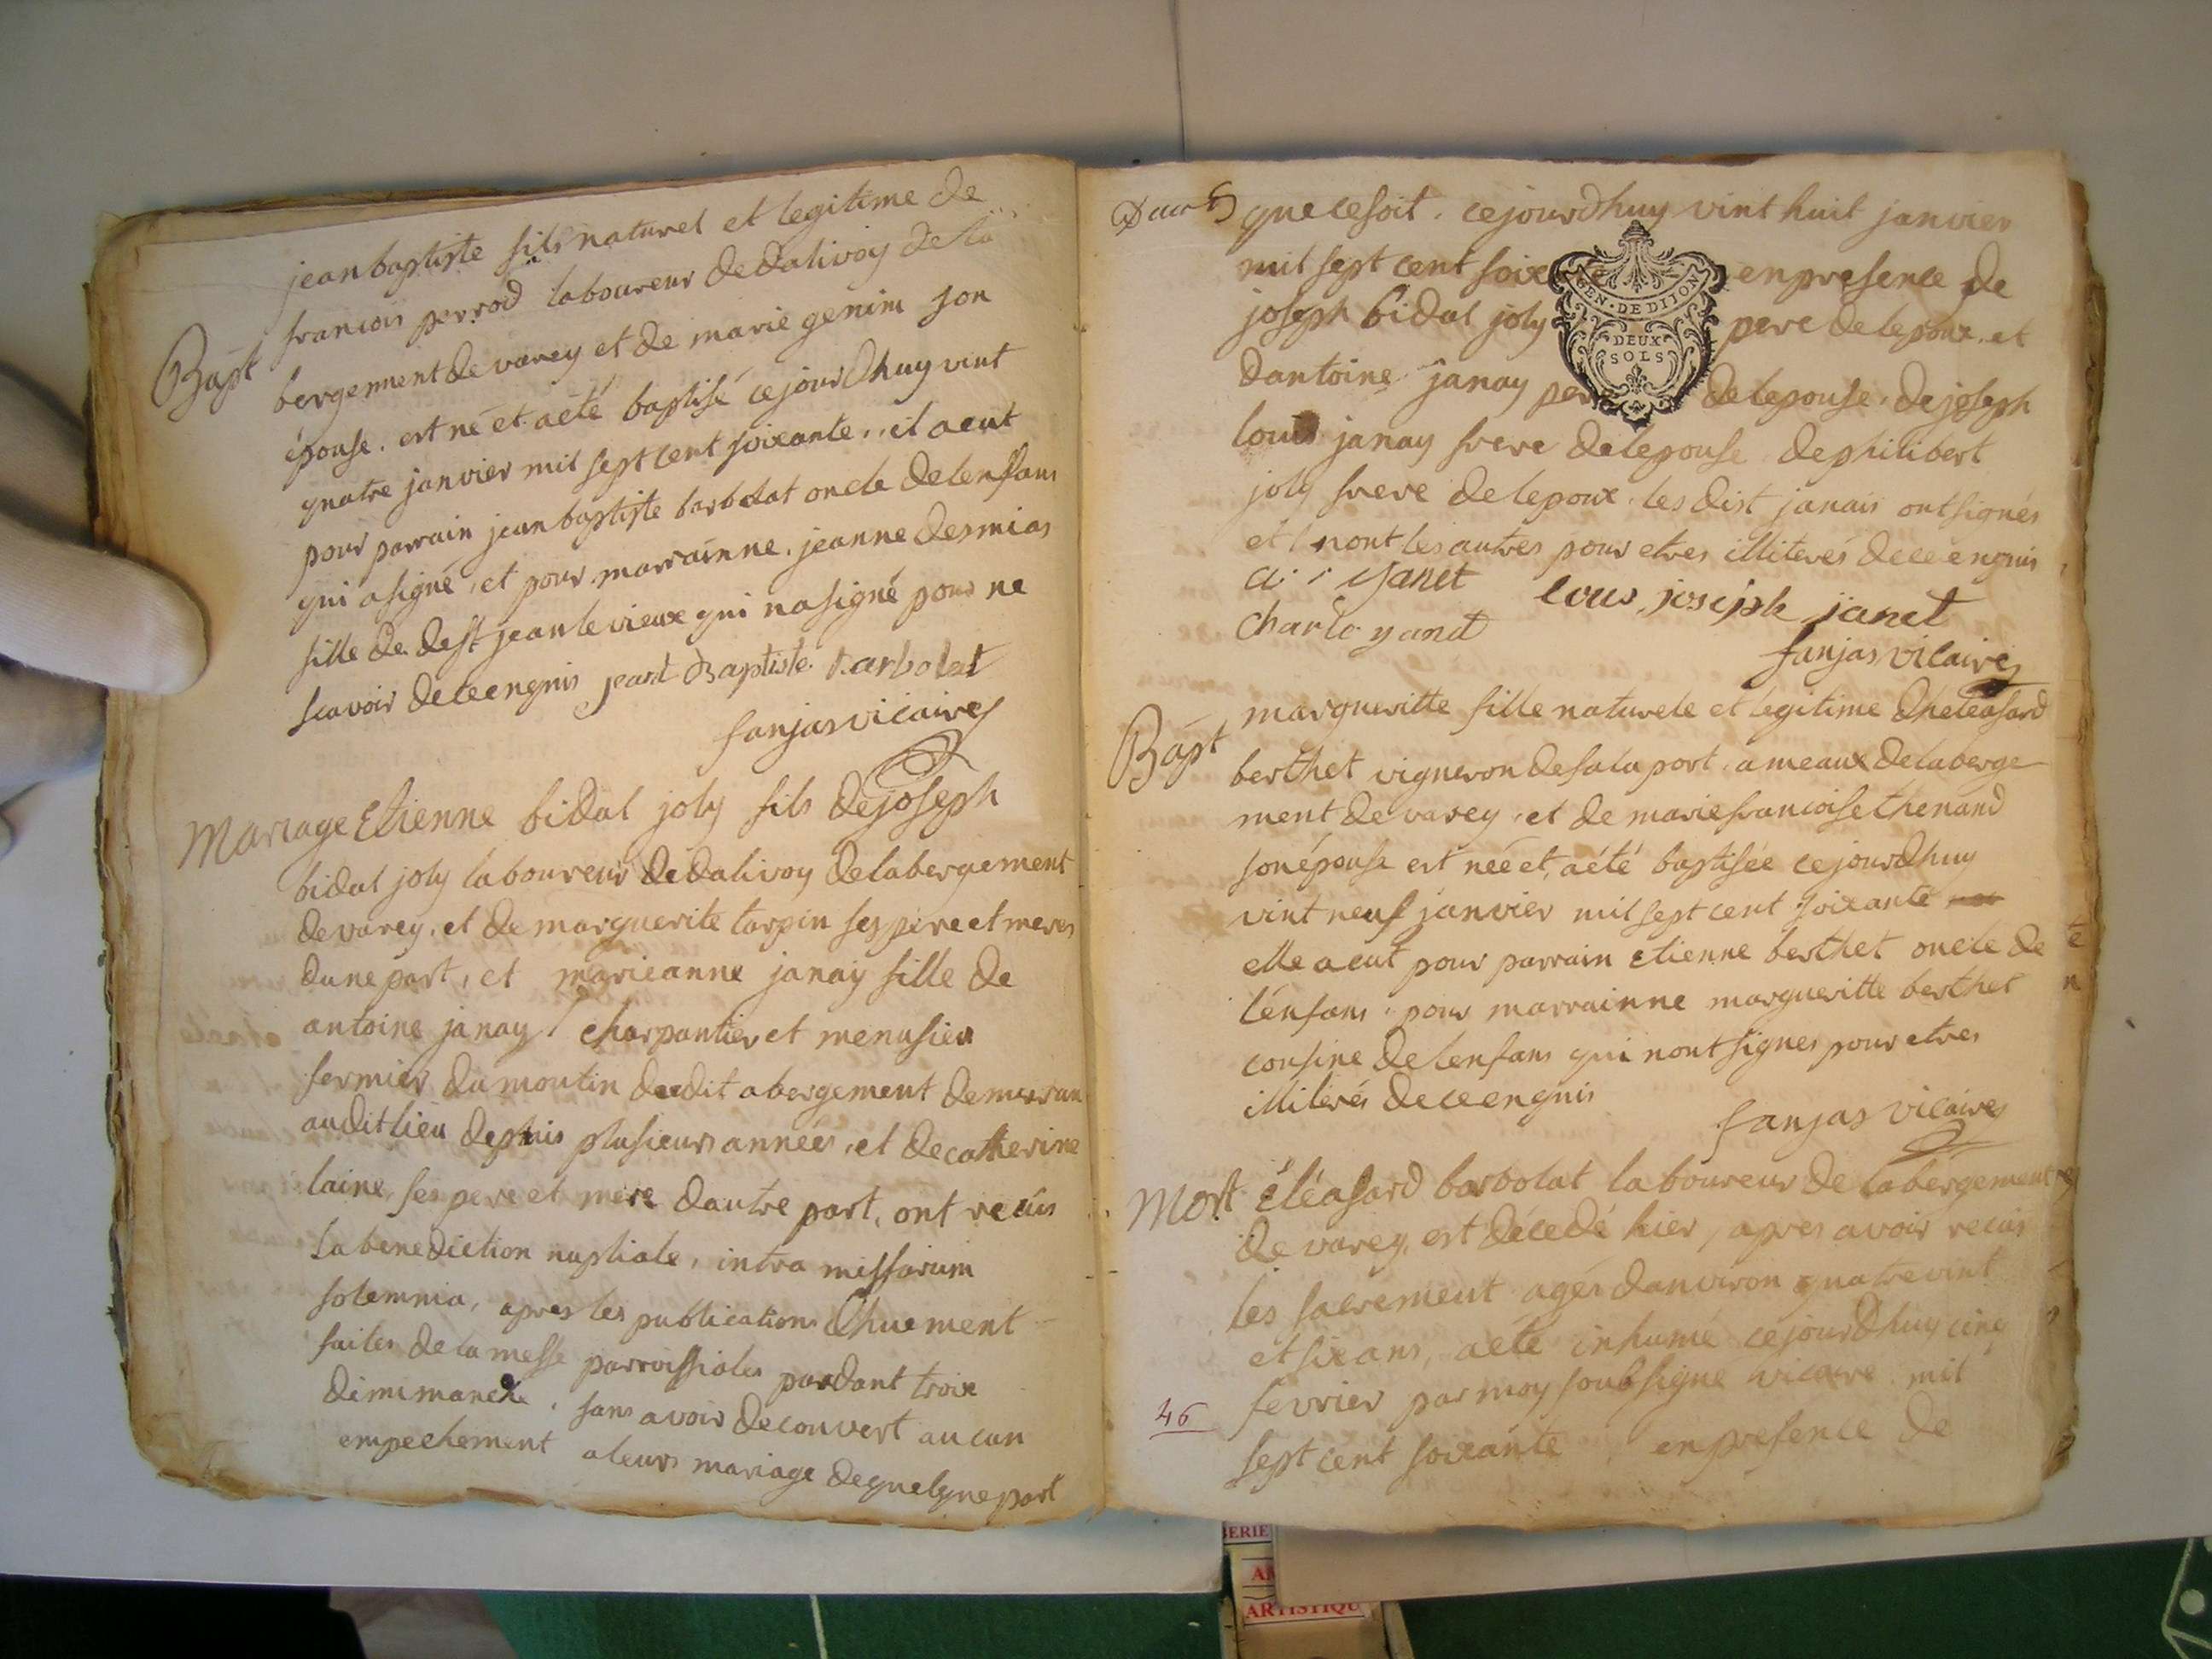 jean baptiste fils naturel et legitime de
francois perrod laboureur de dalivoy de la
Bapt
bergement de varey et de marie genin son
épouse. est né et a été baptisé cejourdhuy vint
quatre janvier mil sept cent soixante. il a eut
pour parrain jean baptiste barbolat oncle de lenfans
qui a signé, et pour marrainne. jeanne desmias
fille de de st jean le vieux qui na signé pour ne
scavoir de ce enquis jeant Baptiste barbolat
fanjas vicaire
Mariage Etienne bidal joly fils de joseph
bidal joly laboureur de dalivoy de labergement
de varey, et de marguerite tarpin ses pere et meres
dune part, et marieanne janay fille de
antoine janay charpantier et menusier
fermier du moulin dudit abergement demeurant
audit lieu depuis plusieurs années, et de catherine
laine, ses pere et mere dautre part, ont recus
la benediction nuptiale, intra missarum
solemnia, apres les publications dhuement
faites de la messe parroissiales pandant troix
dimmanche, sans avoir decouvert aucun
empechement a leurs mariage de quelque part
que ce soit. cejourdhuy vint huit janvier
mil sept cent soixante en presence de
GEN. DE DIJON
DEUX
SOLS
joseph bidal joly pere de lepoux. et
dantoine janay pere de lepouse. de joseph
louis janay frere de lepouse de philibert
joly frere de lepoux. les dist janais ont signés
et nont les autres pour etres illiterés de ce enquis
janet louis joseph janet
fanjas vicaire
Bapt
margueritte fille naturele et legitime dheleasard
berthet vigneron de sala port ameaux de laberge
ment de varey, et de marie francoise thenand
son épouse est neé et a été baptisée cejourdhuy
vint neuf janvier mil sept cent soixante
elle a eut pour parrain etienne berthet oncle de
lénfans. pour marrainne margueritte berthet
cousine de lenfans qui nont signes pour etres
illiterés de ce enquis
fanjas vicaire
Mort éléasard barbolat laboureur de labergement
de varey, est décedé hier, apres avoir recus
les sacrement agés danviron quatre vint
et six ans, a été inhumé cejourdhuy cinq
fevrier par moy soubsigné vicaire mil
46
sept cent soixante en presence de
BERIE
ARTISTIQU